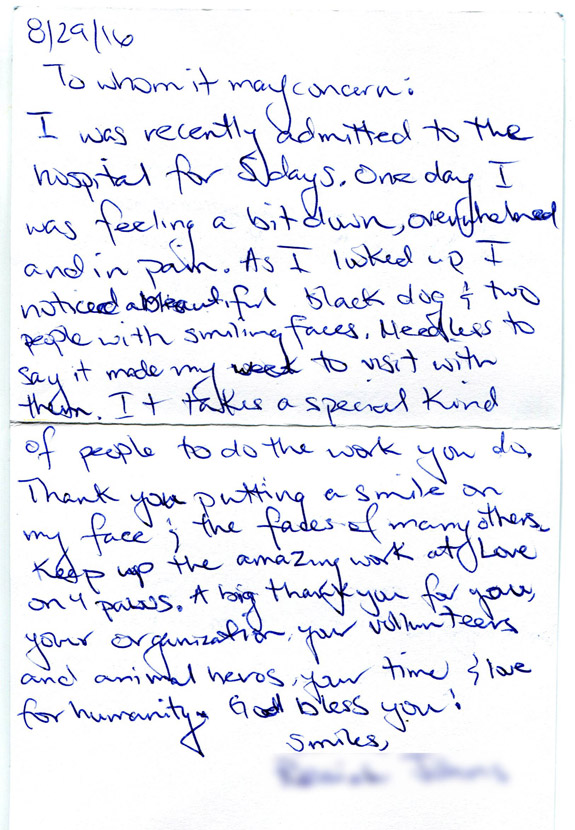 8/29/16
To whom it may concern:
I was recently admitted to the
hospital for 5 days. One day I
was feeling a bit down, overwhelmed
and in pain. As I looked up I
noticed a beautiful black dog & two
people with smiling faces. Needless to
say it made my week to visit with
them. It takes a special kind
of people to do the work you do.
Thank you putting a smile on
my face & the faces of many others.
Keep up the amazing work at Love
on 4 paws. A big thank you for you,
your organization, your volunteers
and animal heros, your time & love
for humanity. God bless you!
Smiles,